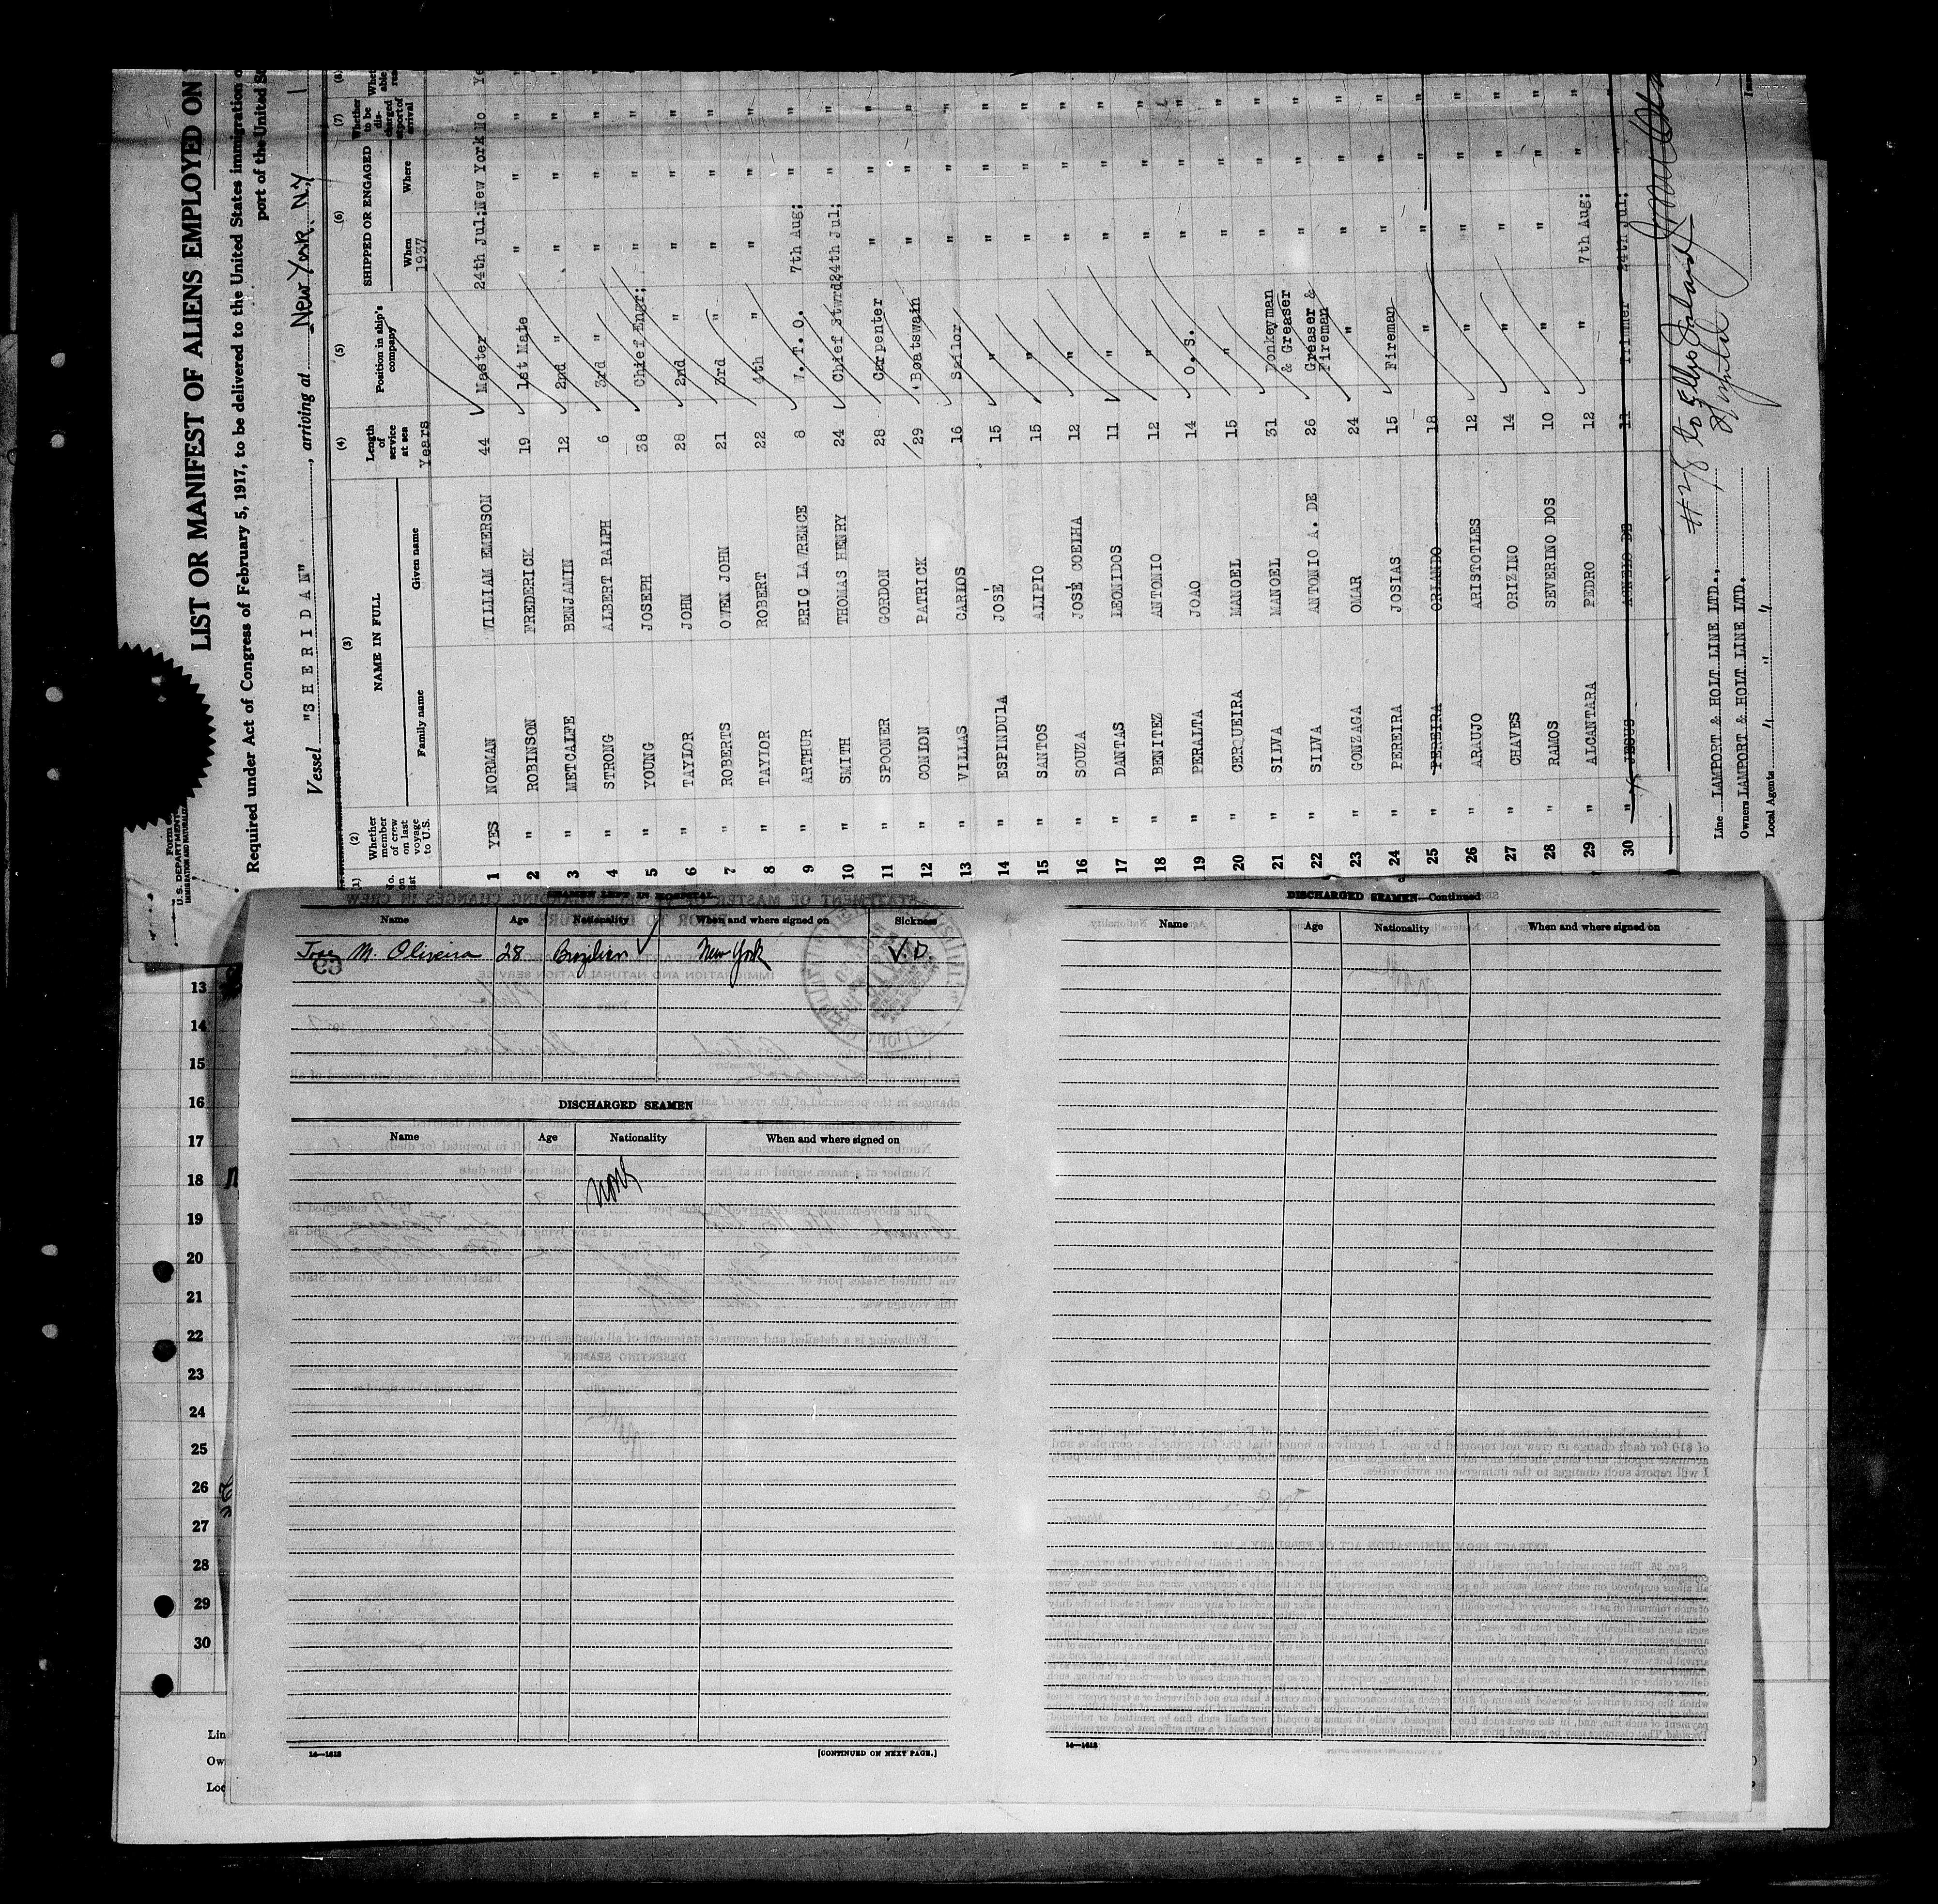 LIST OR MANIFEST OF ALIENS EMPLOYED ON
Required under Act of Congress of February 5, 1917, to be delivered to the United States immigration
port of the United
Vessel "SHERIDAN", arriving at New York. N.Y
U.S. DEPARTMENT
(1) (2) (3) (4) (5) (6) (7) (8)
No. on list Whether member of crew on last voyage to U.S. NAME IN FULL Family name Given name Length of service at sea Position in ship's company SHIPPED OR ENGAGED When Where Whether to be discharged at port of arrival
Years 1937
1 YES NORMAN WILLIAM EMERSON 44 Master 24th Jul; New York No
2 " ROBINSON FREDERICK 19 1st Mate " " "
3 " METCALFE BENJAMIN 12 2nd " " " "
4 " STRONG ALBERT RALPH 6 3rd " " " "
5 " YOUNG JOSEPH 38 Chief Engr; " " "
6 " TAYLOR JOHN 28 2nd " " " "
7 " ROBERTS OWEN JOHN 21 3rd " " " "
8 " TAYLOR ROBERT 22 4th " " " "
9 " ARTHUR ERIC LAWRENCE 8 W.T.O. 7th Aug; " "
10 " SMITH THOMAS HENRY 24 Chief Stwrd 24th Jul; " "
11 " SPOONER GORDON 28 Carpenter " " "
12 " CONLON PATRICK 29 Boatswain " " "
13 " VILLAS CARLOS 16 Sailor " " "
14 " ESPINDULA JOSÉ 15 " " " "
15 " SANTOS ALIPIO 15 " " " "
16 " SOUZA JOSÉ COELHA 12 " " " "
17 " DANTAS LEONIDOS 11 " " " "
18 " BENITEZ ANTONIO 12 " " " "
19 " PERALTA JOAO 14 O.S. " " "
20 " CERQUEIRA MANOEL 15 " " " "
21 " SILVA MANOEL 31 Donkeyman & Greaser " " "
22 " SILVA ANTONIO A. DE 26 Greaser & Fireman " " "
23 " GONZAGA OMAR 24 " " " "
24 " PEREIRA JOSIAS 15 Fireman " " "
25 " PEREIRA ORLANDO 18 " " " "
26 " ARAUJO ARISTOTLES 12 " " " "
27 " CHAVES ORIZINO 14 " " " "
28 " RAMOS SEVERINO DOS 10 " " " "
29 " ALCANTARA PEDRO 12 " 7th Aug; " "
30 " JESUS DE 11 Trimmer 24th Jul; " "
#28 to Ellis Island
Line LAMPORT & HOLT LINE LTD.,
Owners LAMPORT & HOLT LINE LTD.
Local Agents " " "
SEAMEN LEFT IN HOSPITAL
Name Age Nationality When and where signed on Sickness
M. Oliveira 28 Brazilian New York V.D.
DISCHARGED SEAMEN
Name Age Nationality When and where signed on
None
14—1618
[CONTINUED ON NEXT PAGE.]
DISCHARGED SEAMEN—Continued
Name Age Nationality When and where signed on
14—1618
13
14
15
16
17
18
19
20
21
22
23
24
25
26
27
28
29
30
Lin
Ow
Loc